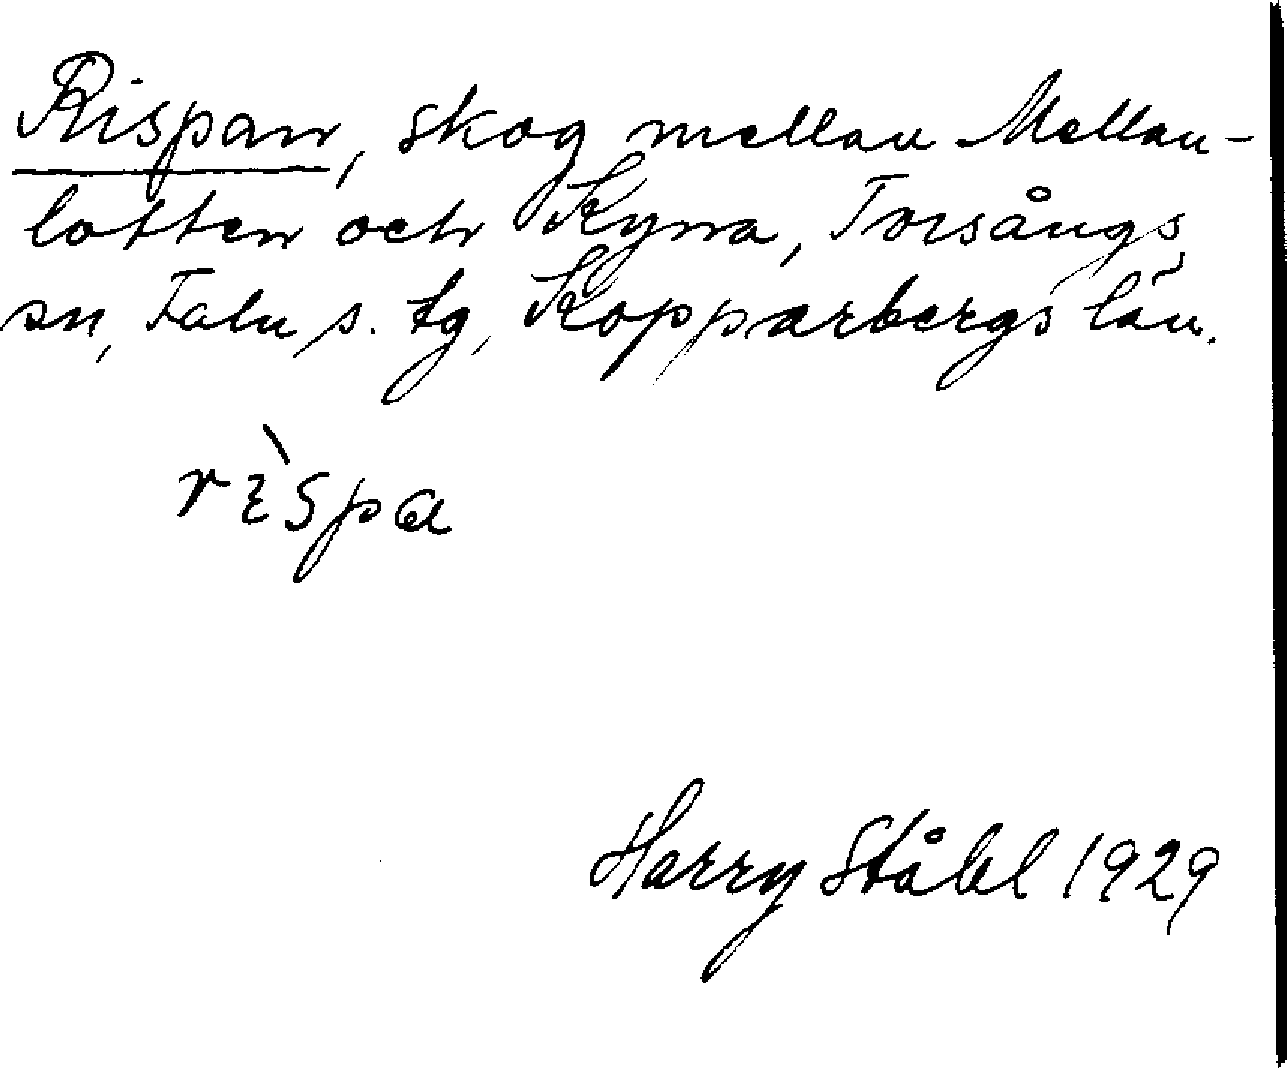 Rispan, skog mellan Mellan-
lotten och Kyna, Torsångs
sn, Falu s. tg, Kopparbergs län.
rìspa
Harry Ståhl 1929